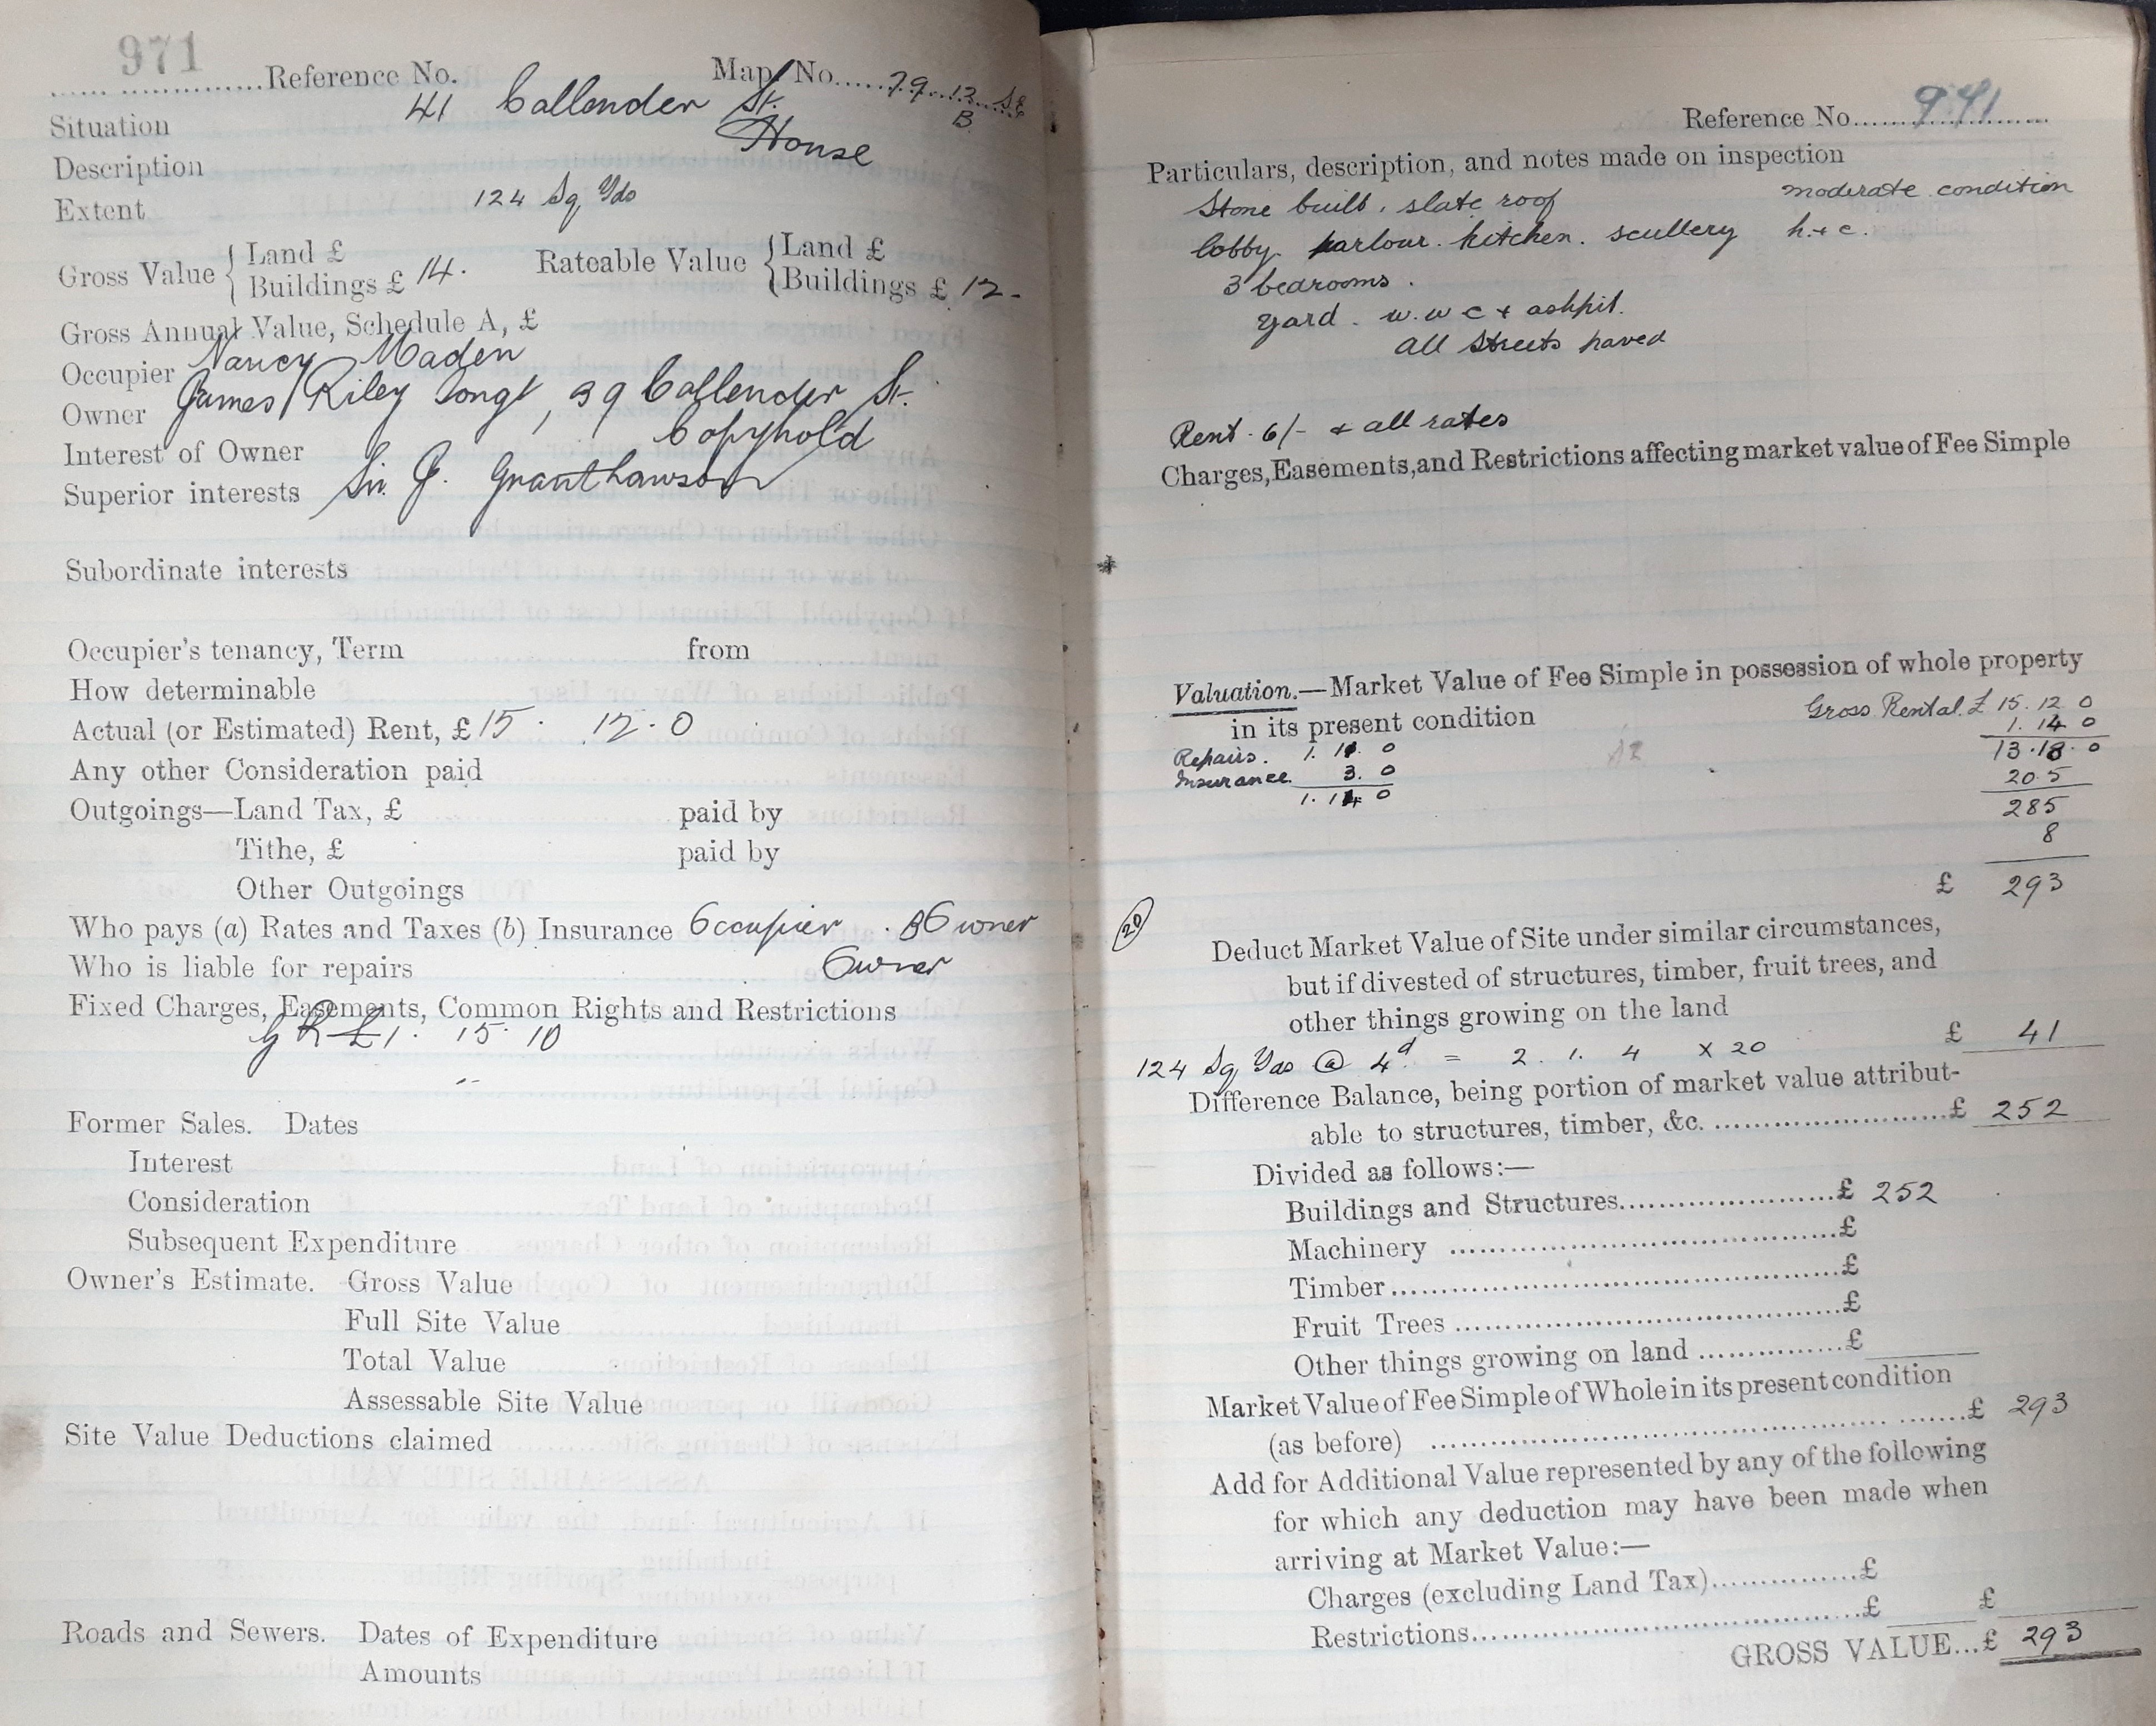 971
Reference No. Map No. 79.12 SE
B
Situation 41 Callender St.
Description House
Extent 124 Sq Yds
Gross Value { Land £
Buildings £ 14.
Rateable Value { Land £
Buildings £ 12-
Gross Annual Value, Schedule A, £
Occupier Nancy Maden
Owner James Riley Songt, 39 Callender St.
Interest of Owner Copyhold
Superior interests Sir J. Granthawson
Subordinate interests
Occupier's tenancy, Term from
How determinable
Actual (or Estimated) Rent, £ 15 . 12 . 0
Any other Consideration paid
Outgoings—Land Tax, £ paid by
Tithe, £ paid by
Other Outgoings
Who pays (a) Rates and Taxes (b) Insurance Occupier . B Owner
Who is liable for repairs Owner
Fixed Charges, Easements, Common Rights and Restrictions
G R £1. 15. 10
Former Sales. Dates
Interest
Consideration
Subsequent Expenditure
Owner's Estimate. Gross Value
Full Site Value
Total Value
Assessable Site Value
Site Value Deductions claimed
Roads and Sewers. Dates of Expenditure
Amounts
Reference No. 971
Particulars, description, and notes made on inspection
Stone built, slate roof moderate condition
lobby parlour. kitchen. scullery h. + c.
3 bedrooms.
yard. w. w c + ashpit.
all streets paved
Rent. 6/- + all rates
Charges, Easements, and Restrictions affecting market value of Fee Simple
Valuation.—Market Value of Fee Simple in possession of whole property
in its present condition
Gross Rental £ 15. 12 0
1. 14 0
13.18.0
20.5
285
8
£ 293
Repairs. 1. 11. 0
Insurance 3. 0
1. 14 0
20
Deduct Market Value of Site under similar circumstances,
but if divested of structures, timber, fruit trees, and
other things growing on the land
£ 41
124 Sq Yds @ 4d = 2. 1. 4 x 20
Difference Balance, being portion of market value attribut-
able to structures, timber, &c. £ 252
Divided as follows:—
Buildings and Structures £ 252
Machinery £
Timber £
Fruit Trees £
Other things growing on land £
Market Value of Fee Simple of Whole in its present condition
(as before) £ 293
Add for Additional Value represented by any of the following
for which any deduction may have been made when
arriving at Market Value:—
Charges (excluding Land Tax) £
Restrictions £ £
GROSS VALUE...£ 293